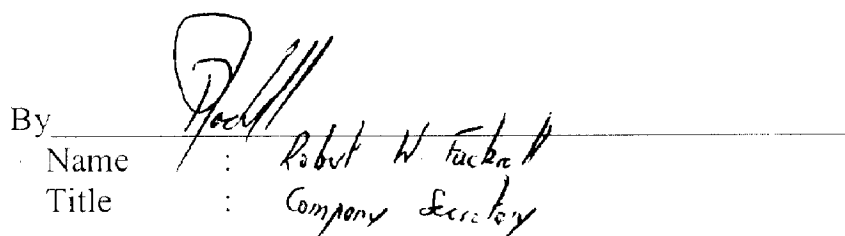 By
Name : Robert W.
Title : Company Secretary